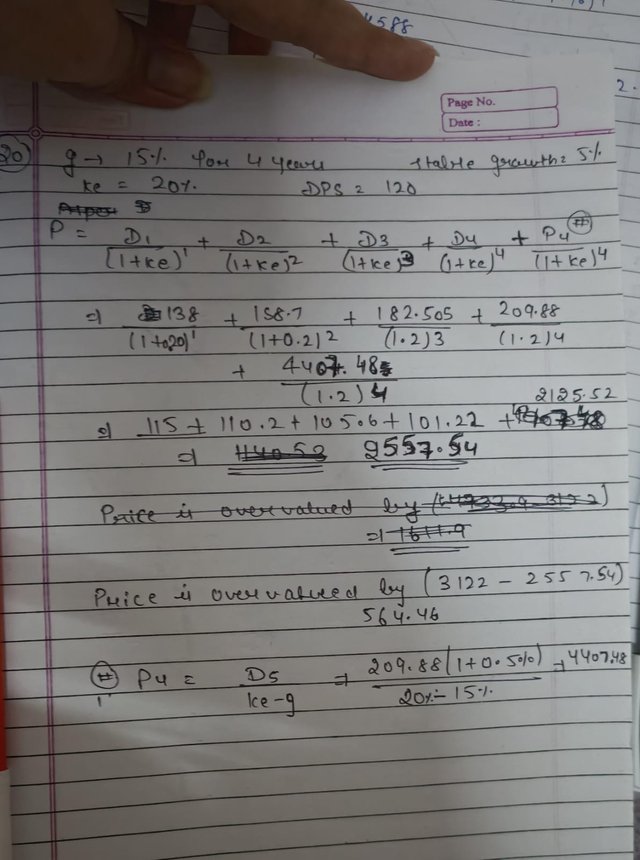 4588
2.
Page No.
Date :
20 g → 15% for 4 years stable growth = 5%
ke = 20% DPS = 120
P = D1/(1+ke)¹ + D2/(1+ke)² + D3/(1+ke)3 + D4/(1+ke)⁴ + P4 (#)/(1+ke)⁴
⇒ 138/(1+0.20)¹ + 158.7/(1+0.2)2 + 182.505/(1.2)3 + 209.88/(1.2)4
+ 4407.48/(1.2)4
2125.52
⇒ 115 + 110.2 + 105.6 + 101.22 +
⇒ 1140.53 2557.54
Price is overvalued by
⇒ 1611.9
Price is overvalued by (3122 - 2557.54)
564.46
(#) P4 = D5/ke-g ⇒ 209.88(1+0.5%)/20%-15% ⇒ 4407.48